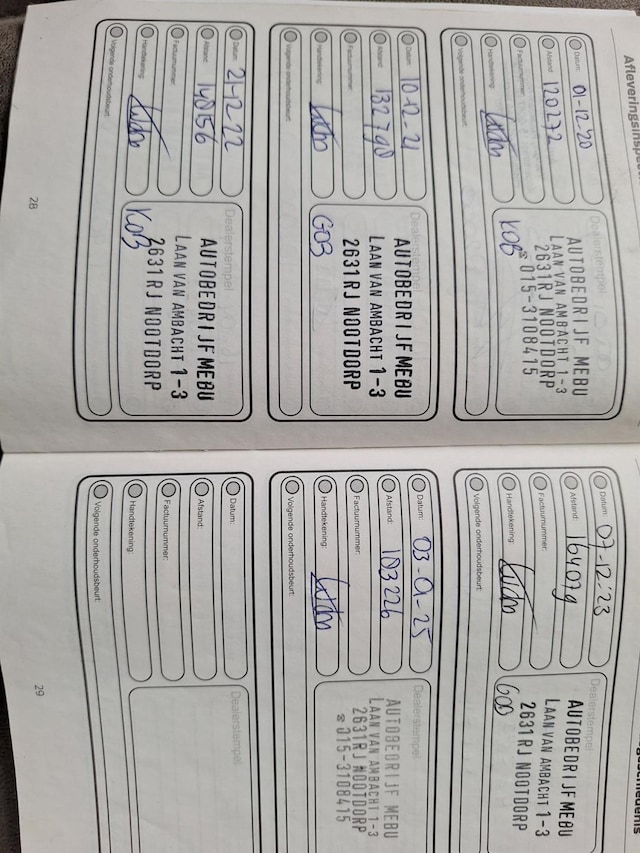 Afleveringsinspec
Datum: 01-12-20
Afstand: 120272
Factuurnummer:
Handtekening:
Volgende onderhoudsbeurt:
Dealerstempel
AUTOBEDRIJF MEBU
LAAN VAN AMBACHT 1-3
2631RJ NOOTDORP
☎ 015-3108415
Datum: 10-12-21
Afstand: 132790
Factuurnummer:
Handtekening:
Volgende onderhoudsbeurt:
Dealerstempel
AUTOBEDRIJF MEBU
LAAN VAN AMBACHT 1-3
2631RJ NOOTDORP
Datum: 21-12-22
Afstand: 148156
Factuurnummer:
Handtekening:
Volgende onderhoudsbeurt:
Dealerstempel
AUTOBEDRIJF MEBU
LAAN VAN AMBACHT 1-3
2631RJ NOOTDORP
28
Datum: 07-12-23
Afstand: 164079
Factuurnummer:
Handtekening:
Volgende onderhoudsbeurt:
Dealerstempel
AUTOBEDRIJF MEBU
LAAN VAN AMBACHT 1-3
2631RJ NOOTDORP
Datum: 03-01-25
Afstand: 183226
Factuurnummer:
Handtekening:
Volgende onderhoudsbeurt:
Dealerstempel
AUTOBEDRIJF MEBU
LAAN VAN AMBACHT 1-3
2631RJ NOOTDORP
☎ 015-3108415
Datum:
Afstand:
Factuurnummer:
Handtekening:
Volgende onderhoudsbeurt:
Dealerstempel
29